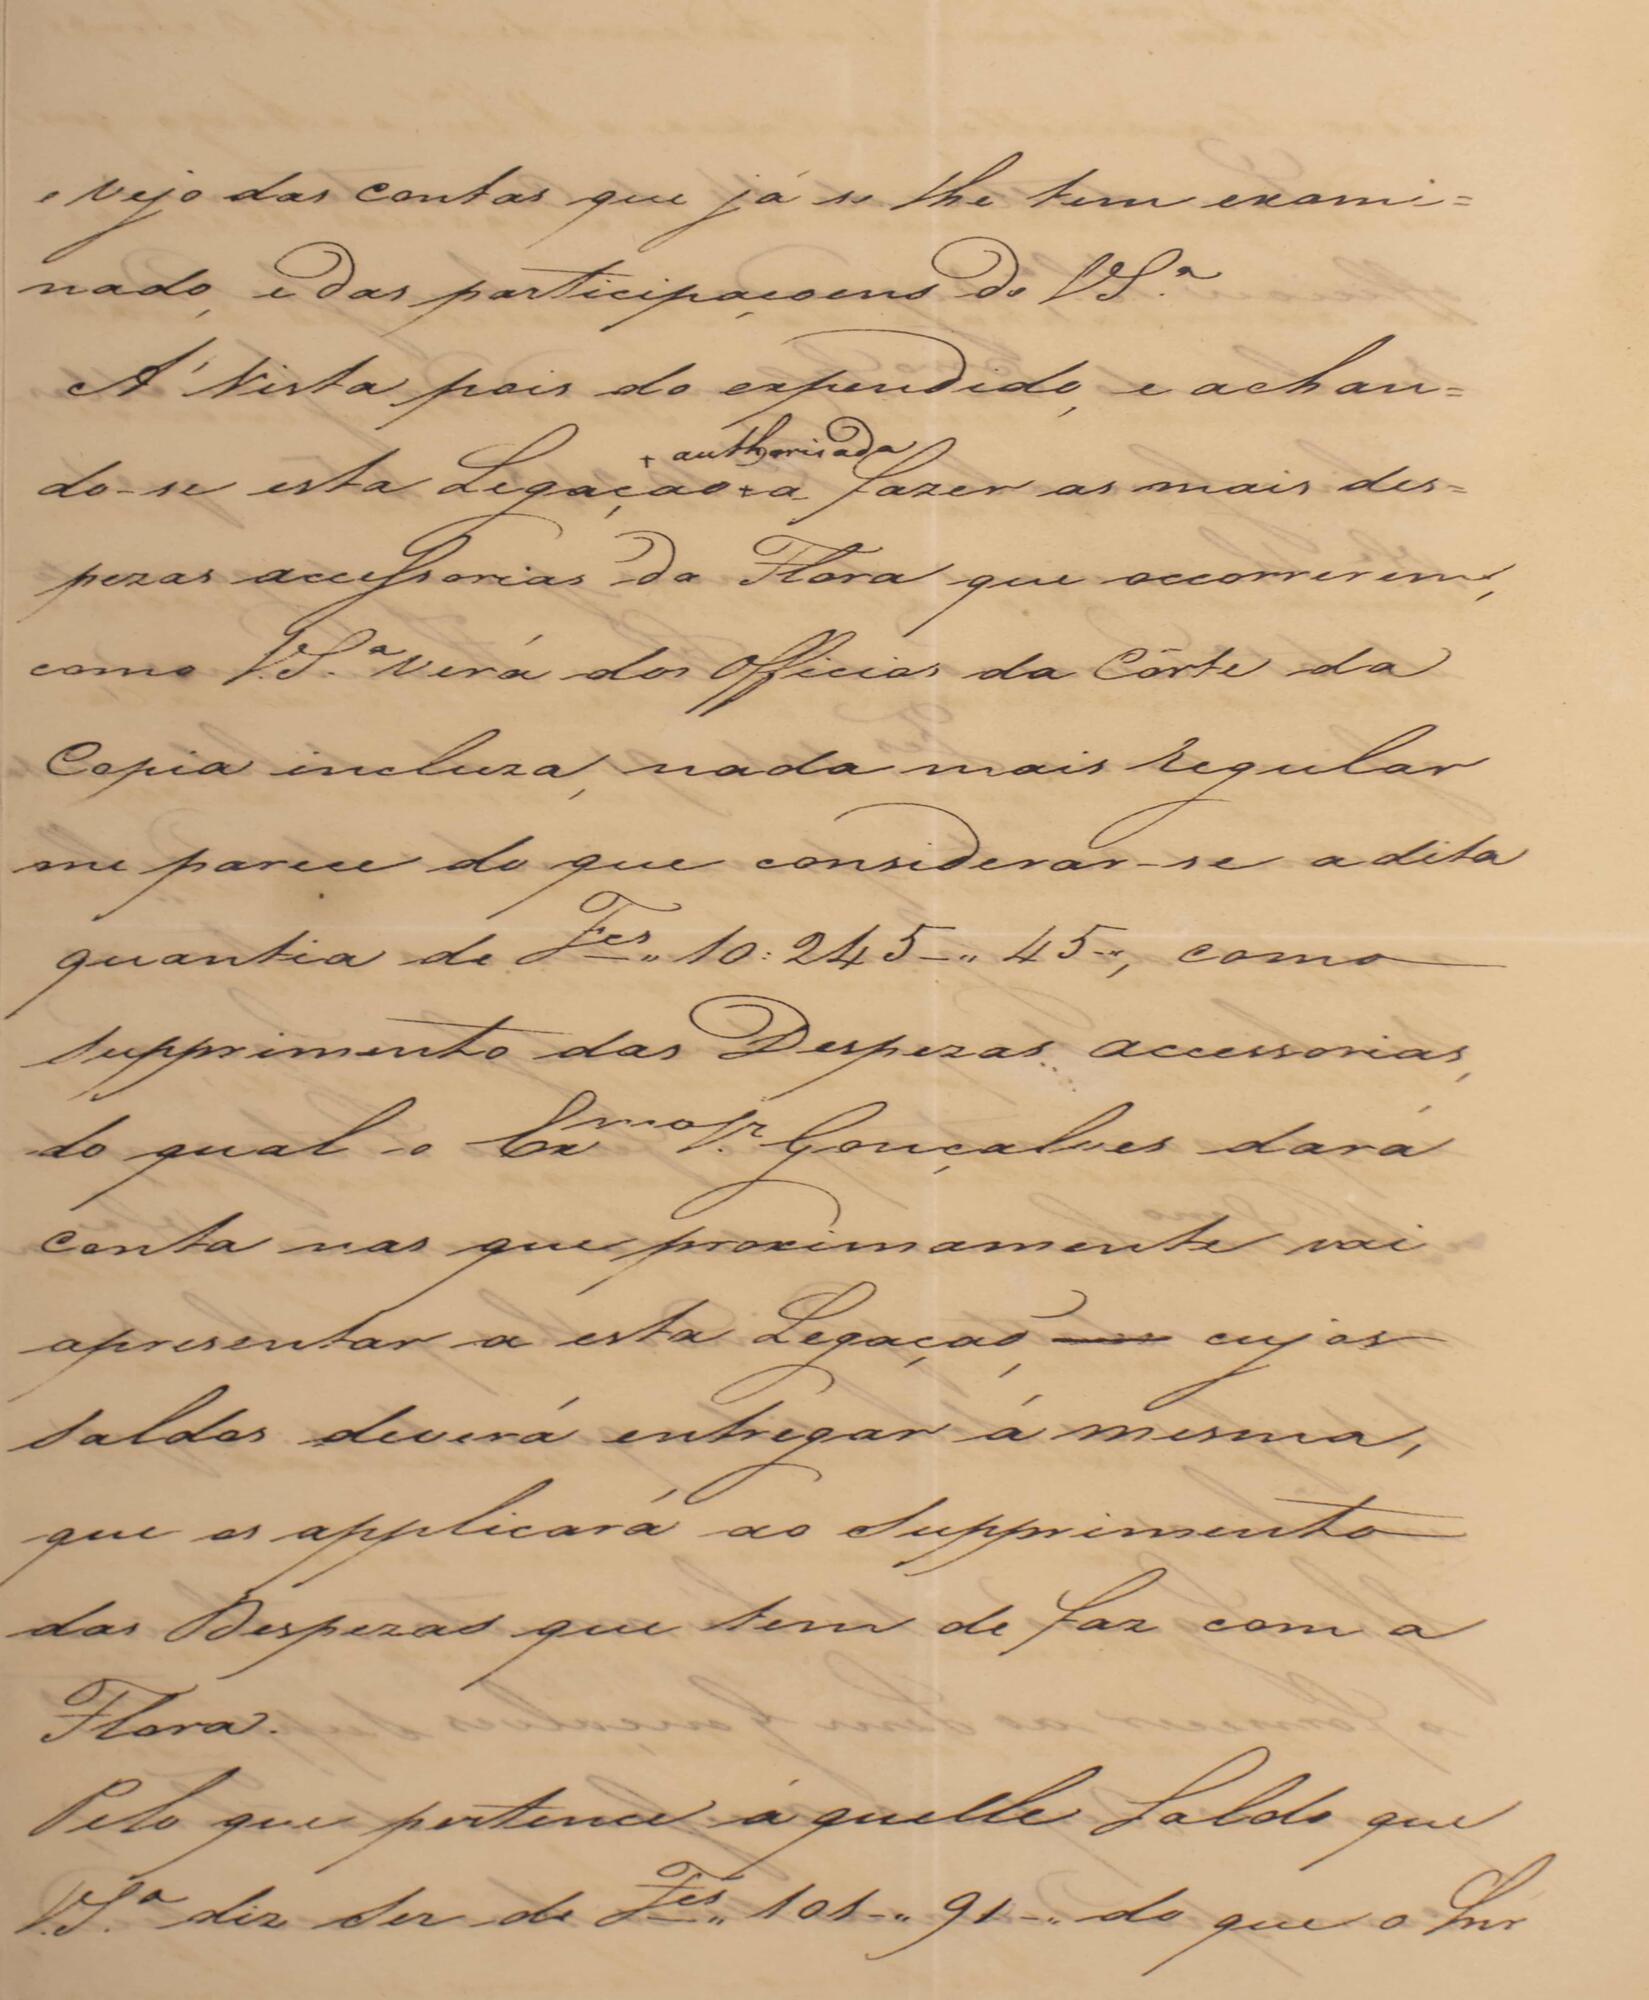 e vejo das contas que já se lhe tem exami=
nado, e das participaçoens de VS.ª
A' Vista pois do expendido, e achan=
+ authorisada
do-se esta Legação + a fazer as mais des=
pezas accessorias da Flora que occorrerem,
como V.S.ª verá dos Officios da Côrte da
Copia incluza, nada mais regular
me parece do que considerar-se a dita
quantia de Fes „ 10:245 „ 45 „, como
supprimento das Despezas accessorias,
do qual o Exmo Sr. Gonçalves dará
conta nas que proximamente vai
apresentar a esta Legação, cujos
saldos deverá entregar á mesma,
que os applicará ao supprimento
das Despezas que tem de faz com a
Flora.
Pelo que pertence áquelle Saldo que
V.S.ª diz ser de Fes „ 101 „ 91 „ do que o Snr